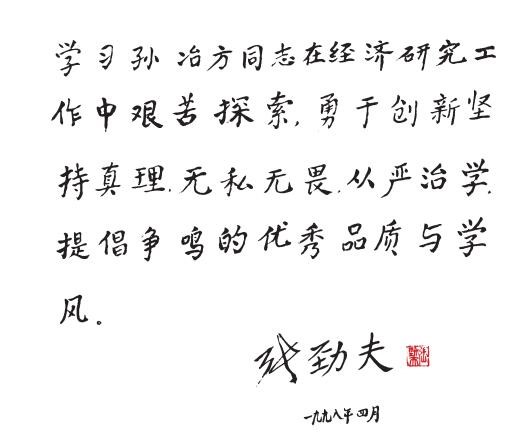 学习孙冶方同志在经济研究工
作中艰苦探索,勇于创新坚
持真理.无私无畏.从严治学.
提倡争鸣的优秀品质与学
风。
张劲夫
一九九八年四月